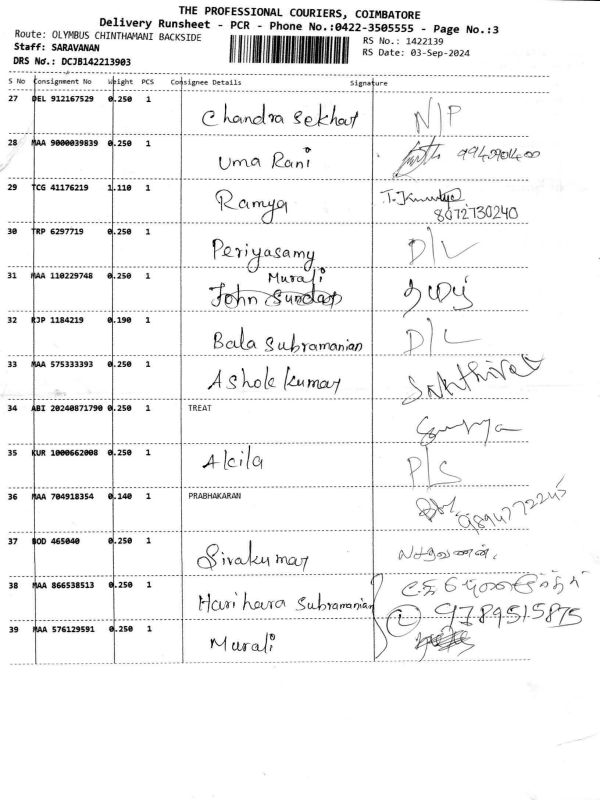 THE PROFESSIONAL COURIERS, COIMBATORE
Delivery Runsheet - PCR - Phone No.:0422-3505555 - Page No.:3
Route: OLYMBUS CHINTHAMANI BACKSIDE
RS No.: 1422139
Staff: SARAVANAN
RS Date: 03-Sep-2024
DRS No.: DCJB142213903
S No Consignment No Weight PCS Consignee Details Signature
27 DEL 912167529 0.250 1 Chandra Sekhar N/P
28 MAA 9000039839 0.250 1 Uma Rani
29 TCG 41176219 1.110 1 Ramya
8072730240
30 TRP 6297719 0.250 1 Periyasamy D/L
31 MAA 110229748 0.250 1 Murali
John Sundar
32 RJP 1184219 0.190 1 Bala Subramanian D/L
33 MAA 575333393 0.250 1 Ashok kumar Sakthivel
34 ABI 20240871790 0.250 1 TREAT
35 KUR 1000662008 0.250 1 Akila
36 MAA 704918354 0.140 1 PRABHAKARAN
37 BOD 465040 0.250 1 Sivakumar
38 MAA 866538513 0.250 1 Hari hara Subramanian
9789515875
39 MAA 576129591 0.250 1 Murali